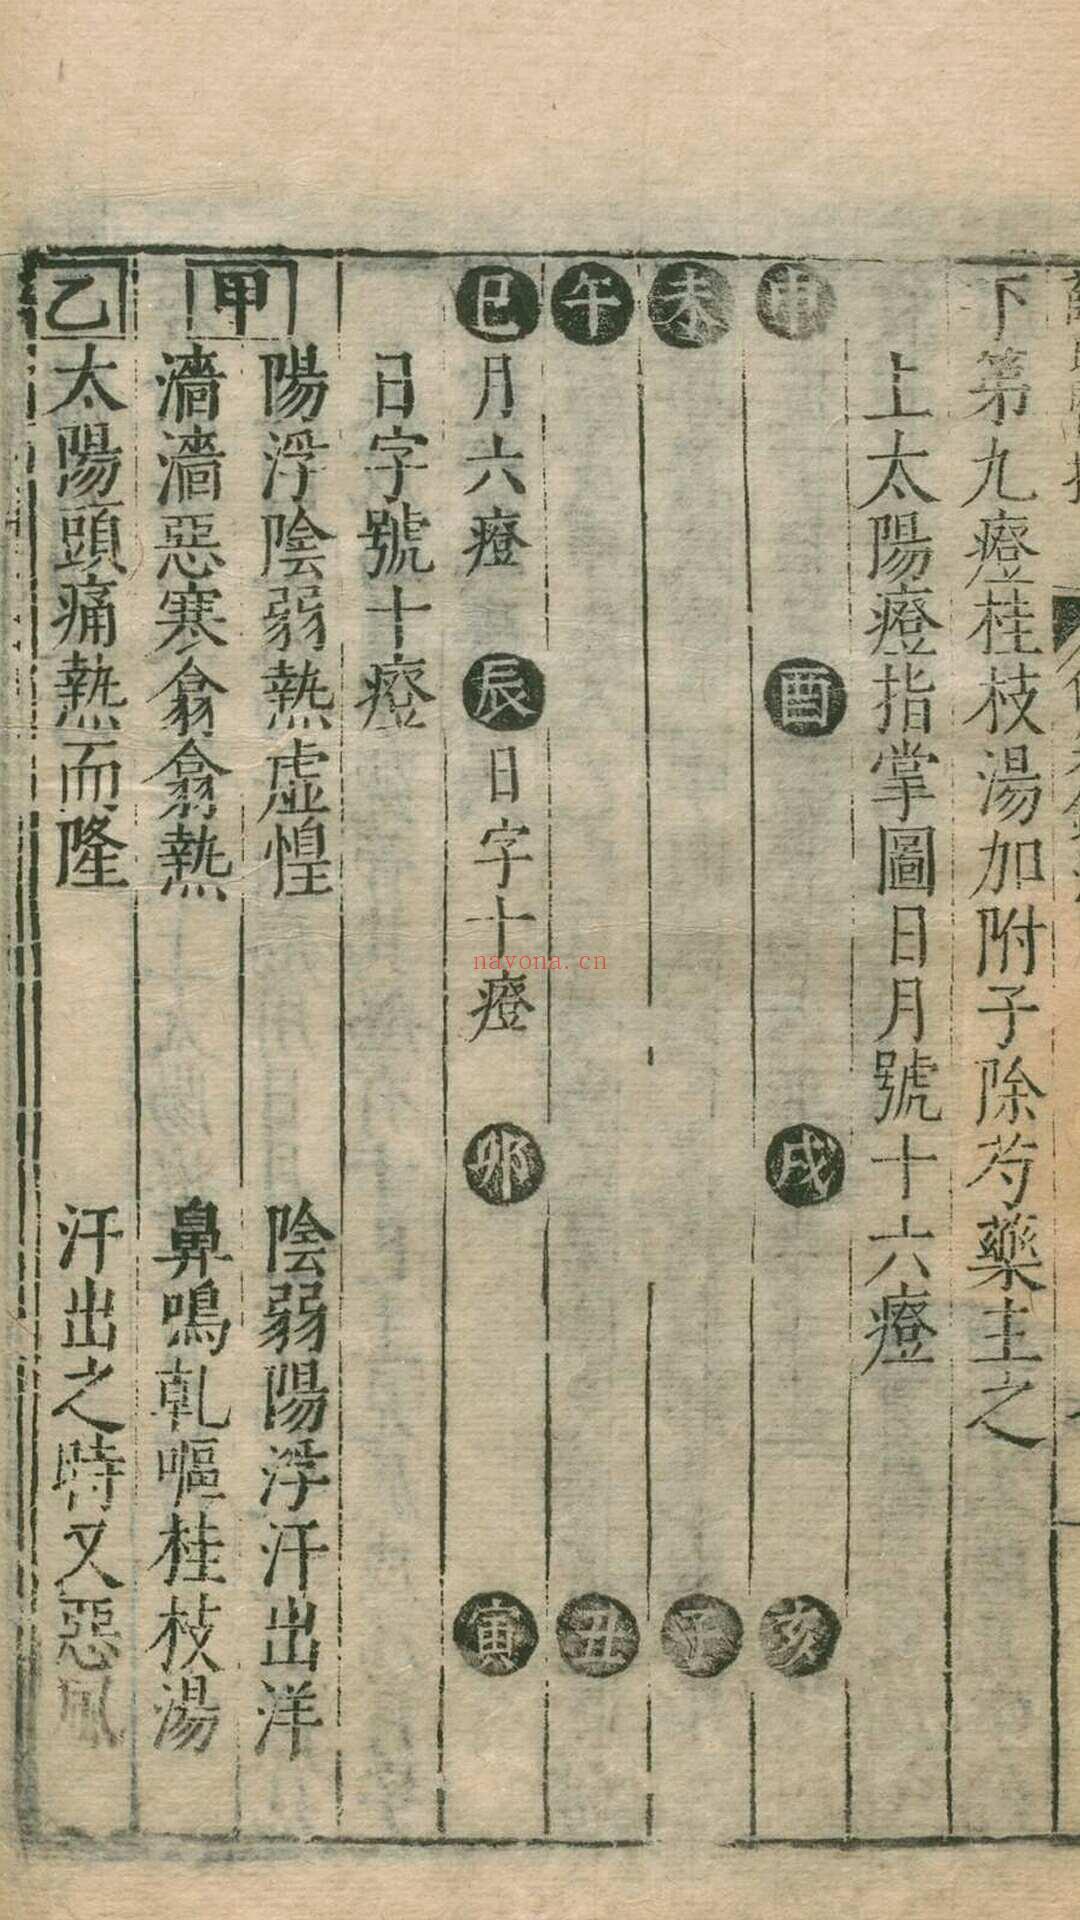 下第九癊桂枝湯加附子除芍藥主之
上太陽癊指掌圖日月號十六癊
申 酉 戌 亥
未 子
午 丑
巳 月六癊 辰 日字十癊 卯 寅
日字號十癊
甲 陽浮陰弱熱虛惶 陰弱陽浮汗出洋
濇濇惡寒翕翕熱 鼻鳴乹嘔桂枝湯
乙 太陽頭痛熱而隆 汗出之時又惡風
nayona.cn